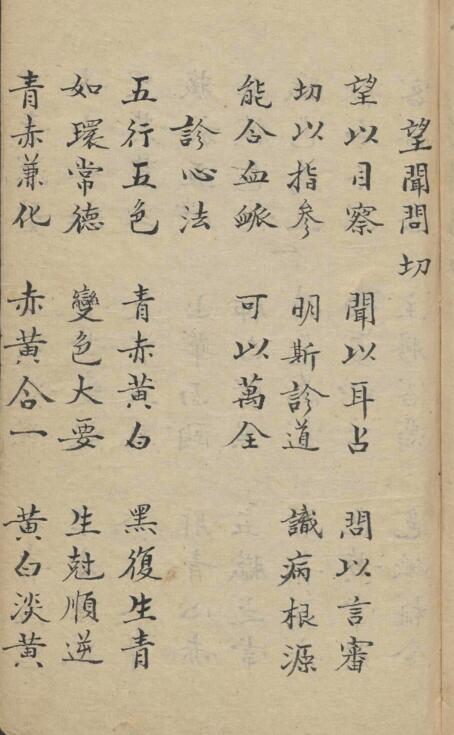 望聞問切
望以目察 聞以耳占 問以言審
切以指參 明斯診道 識病根源
能合血脈 可以萬全
診心法
五行五色 青赤黃白 黑復生青
如環常德 變色大要 生尅順逆
青赤兼化 赤黃合一 黃白淡黃